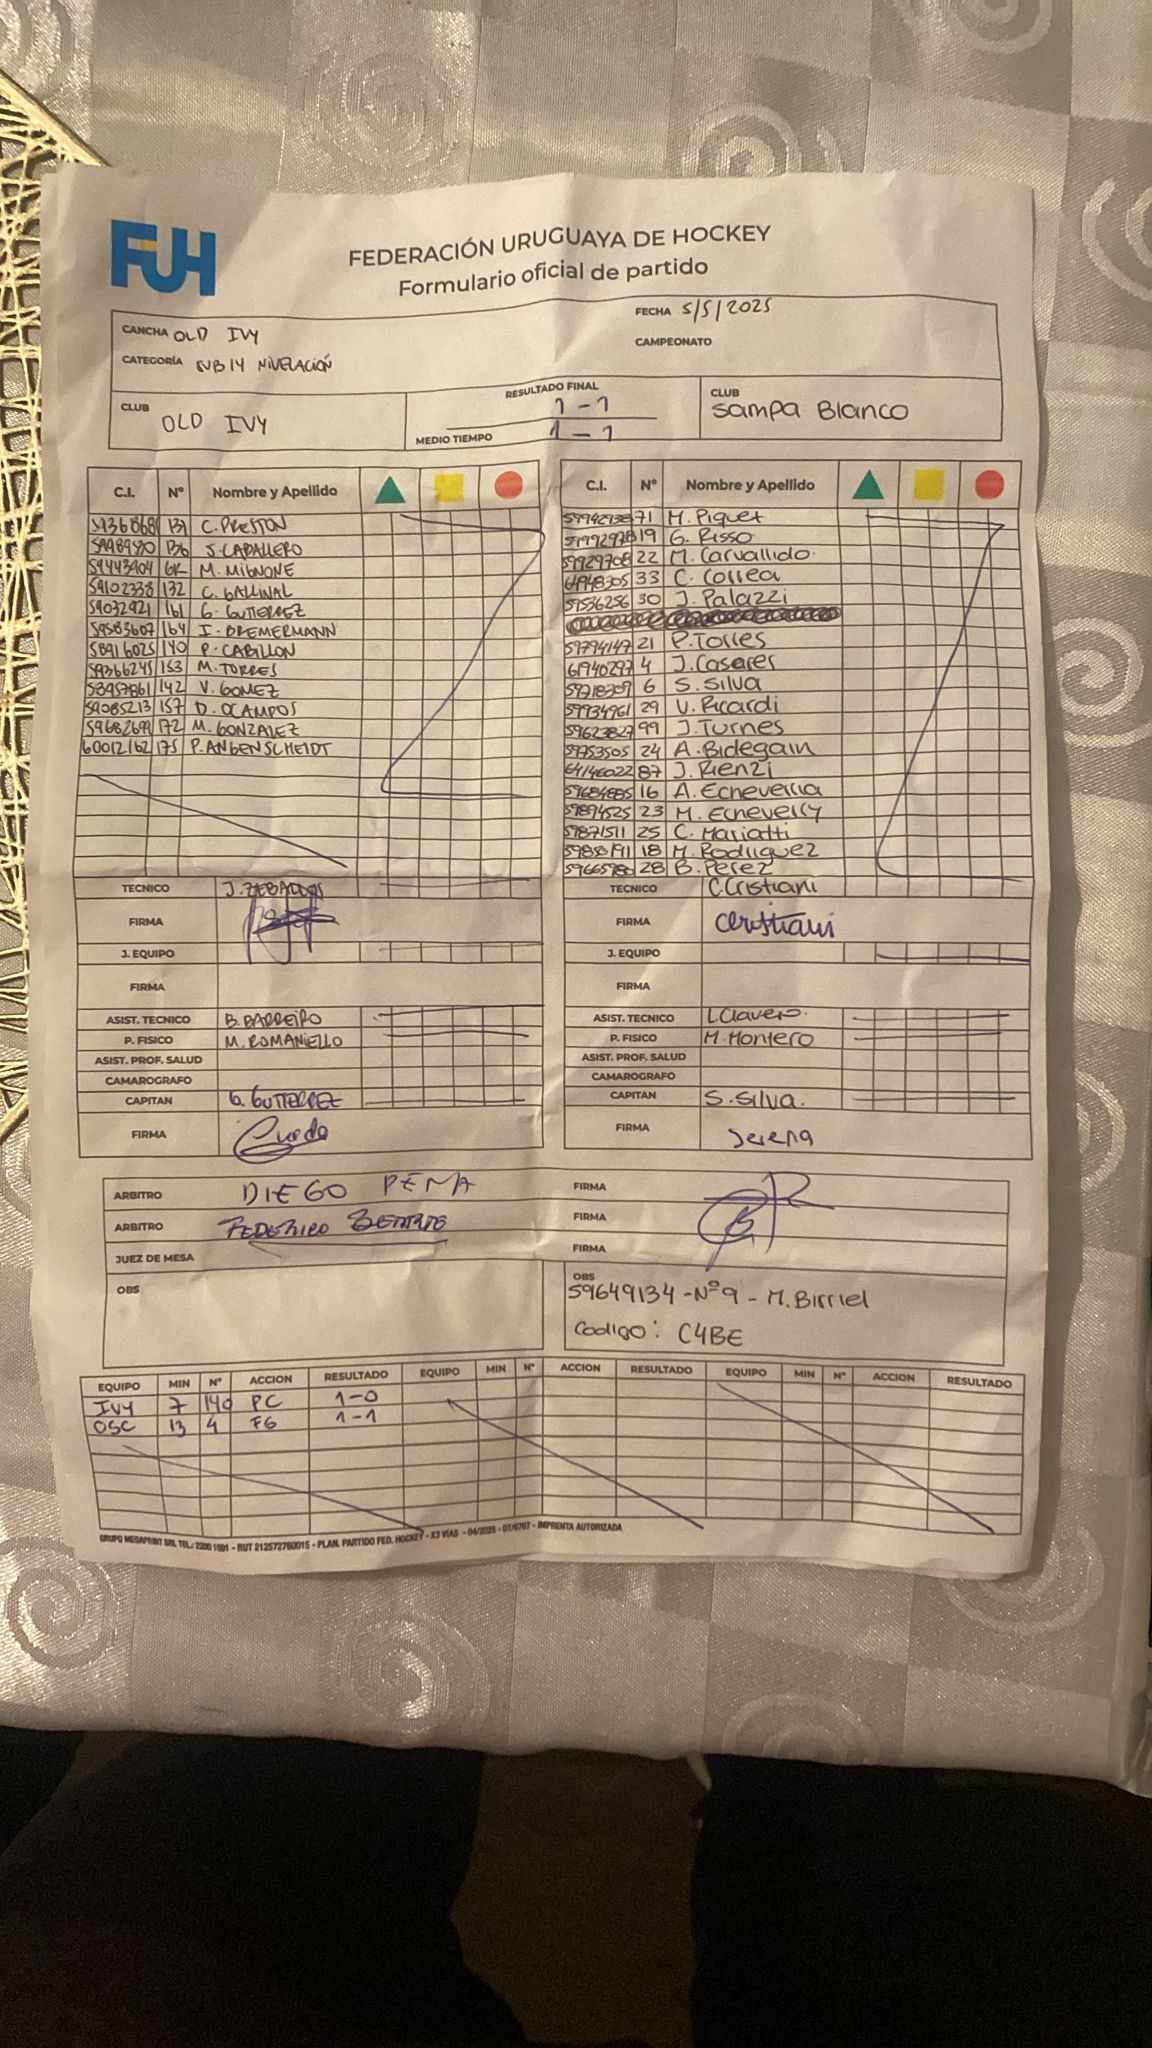 FUH
FEDERACIÓN URUGUAYA DE HOCKEY
Formulario oficial de partido
CANCHA OLD IVY
FECHA 5/5/2025
CATEGORÍA SUB 14 NIVELACIÓN
CAMPEONATO
CLUB OLD IVY
RESULTADO FINAL 1-1
MEDIO TIEMPO 1-1
CLUB Sampa Blanco
C.I. Nº Nombre y Apellido
C. PRESTON
J. CAPALLERO
M. MIGNONE
59102338 132 C. GALLINAL
59032921 161 G. GUTIERREZ
59583607 164 I. BREMERMANN
58916025 140 P. CABILLON
59366245 153 M. TORRES
58957861 142 V. GOMEZ
59085213 157 D. OCAMPOS
59682699 172 M. GONZALEZ
60012162 175 P. ANGENSCHEIDT
TECNICO
FIRMA
J. EQUIPO
FIRMA
ASIST. TECNICO B. BARREIRO
P. FISICO M. ROMANIELLO
ASIST. PROF. SALUD
CAMAROGRAFO
CAPITAN G. GUTIERREZ
FIRMA
C.I. Nº Nombre y Apellido
71 M. Piquet
19 G. Risso
59929708 22 M. Carvallido
33 C. Correa
30 J. Palazzi
59794147 21 P. Torres
61940297 4 J. Casares
6 S. Silva
59934961 29 V. Ricardi
59623827 99 J. Turnes
59753505 24 A. Bidegain
64146022 87 J. Rienzi
59684885 16 A. Echeverria
59894525 23 M. Echeverry
59871511 25 C. Mariatti
18 M. Rodriguez
59665980 28 B. Perez
TECNICO C. Cristiani
FIRMA Cristiani
J. EQUIPO
FIRMA
ASIST. TECNICO L. Clavero.
P. FISICO M. Montero
ASIST. PROF. SALUD
CAMAROGRAFO
CAPITAN S. Silva.
FIRMA Serena
ARBITRO DIEGO PEÑA FIRMA
ARBITRO FEDERICO FIRMA
JUEZ DE MESA FIRMA
OBS
OBS
59649134 - Nº 9 - M. Birriel
Codigo: C4BE
EQUIPO MIN Nº ACCION RESULTADO EQUIPO MIN Nº ACCION RESULTADO EQUIPO MIN Nº ACCION RESULTADO
IVY 7 140 PC 1-0
OSC 13 4 FG 1-1
GRUPO MEGAPRINT SRL TEL.: 2200 1091 - RUT 212572760015 - PLAN. PARTIDO FED. HOCKEY - X3 VÍAS - 04/2025 - IMPRENTA AUTORIZADA